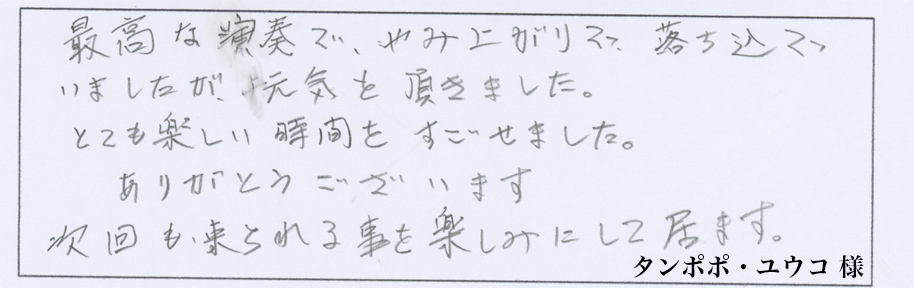 最高な演奏で、やみ上がりで、落ち込んで
いましたが、元気を頂きました。
とても楽しい時間をすごせました。
ありがとうございます
次回も来られる事を楽しみにして居ます。
タンポポ・ユウコ 様